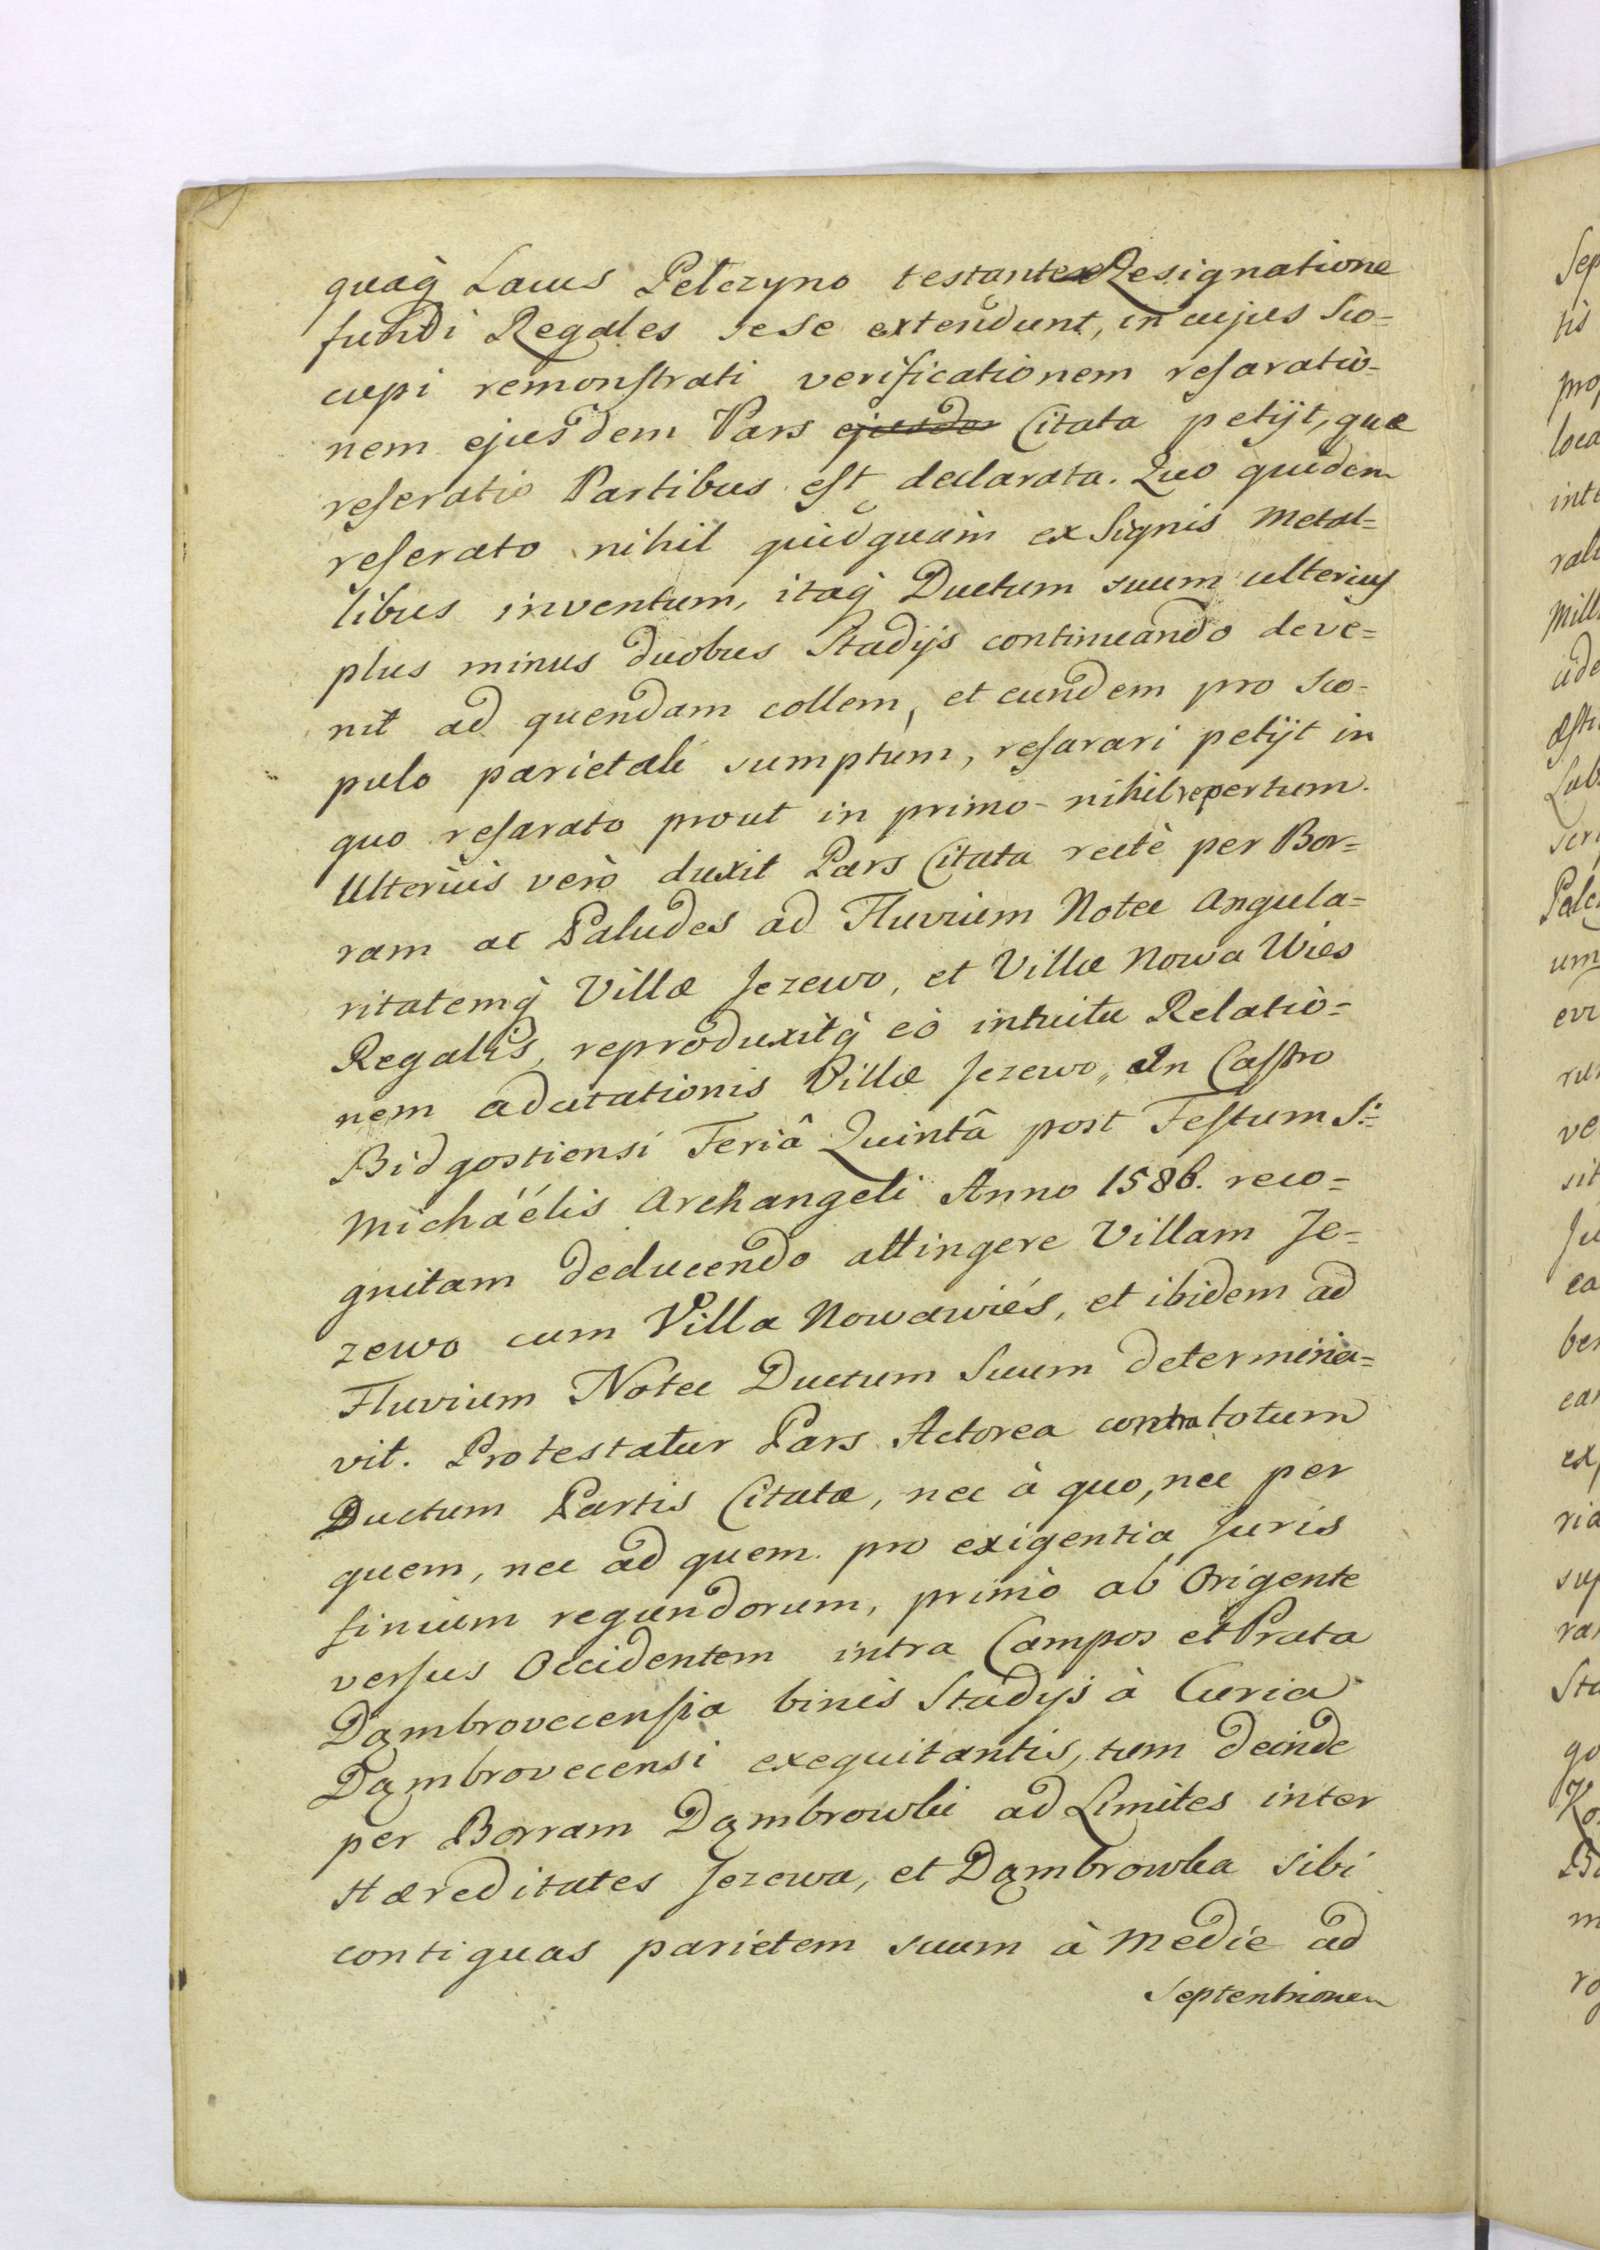 quaq̀ Lacus Pełczyno testante Resignatione
fundi Regales sese extendunt, in cujus Sco-
cupi remonstrati verificationem resaratio-
nem ejusdem Pars ejusdem Citata petijt, quæ
reseratio Partibus est declarata. Quo quidem
reserato nihil quidquam ex Signis Metal-
libus inventum, itaq̀ Ductum suum ulterius
plus minus duobus Stadijs continuando deve-
nit ad quendam collem, et eundem pro Sco-
pulo parietali sumptum, resarari petijt in
quo resarato prout in primo nihil repertum.
Ulterius verò duxit Pars Citata rectè per Bor-
ram ac Paludes ad Fluvium Notec Angula-
ritatemq̀ Villæ Jezewo, et Villæ Nowa Wies
Regalis, reproduxitq̀ eò intuitu Relatio-
nem adcitationis Villæ Jezewo, In Castro
Bidgostiensi Feriâ Quintâ post Festum S:
Michaélis Archangeli Anno 1586. reco-
gnitam deducendo attingere Villam Je-
zewo cum Villa Nowawiés, et ibidem ad
Fluvium Notec Ductum Suum determina-
vit. Protestatur Pars Actorea contra totum
Ductum Partis Citatæ, nec à quo, nec per
quem, nec ad quem pro exigentia Juris
finium regundorum, primò ab Origente
versus Occidentem intra Campos et Prata
Dąmbrovecensia binis Stadijs à Curia
Dąmbrovecensi exequitantis, tum deinde
per Borram Dąmbrowki ad Limites inter
Hæreditates Jezewa, et Dąmbrowka sibi
contiguas parietem suum à Medie ad
Septentrionem
Sep
tis
loca
inte
Mill
um
ve
sit
ea
ria
Sta
Ko